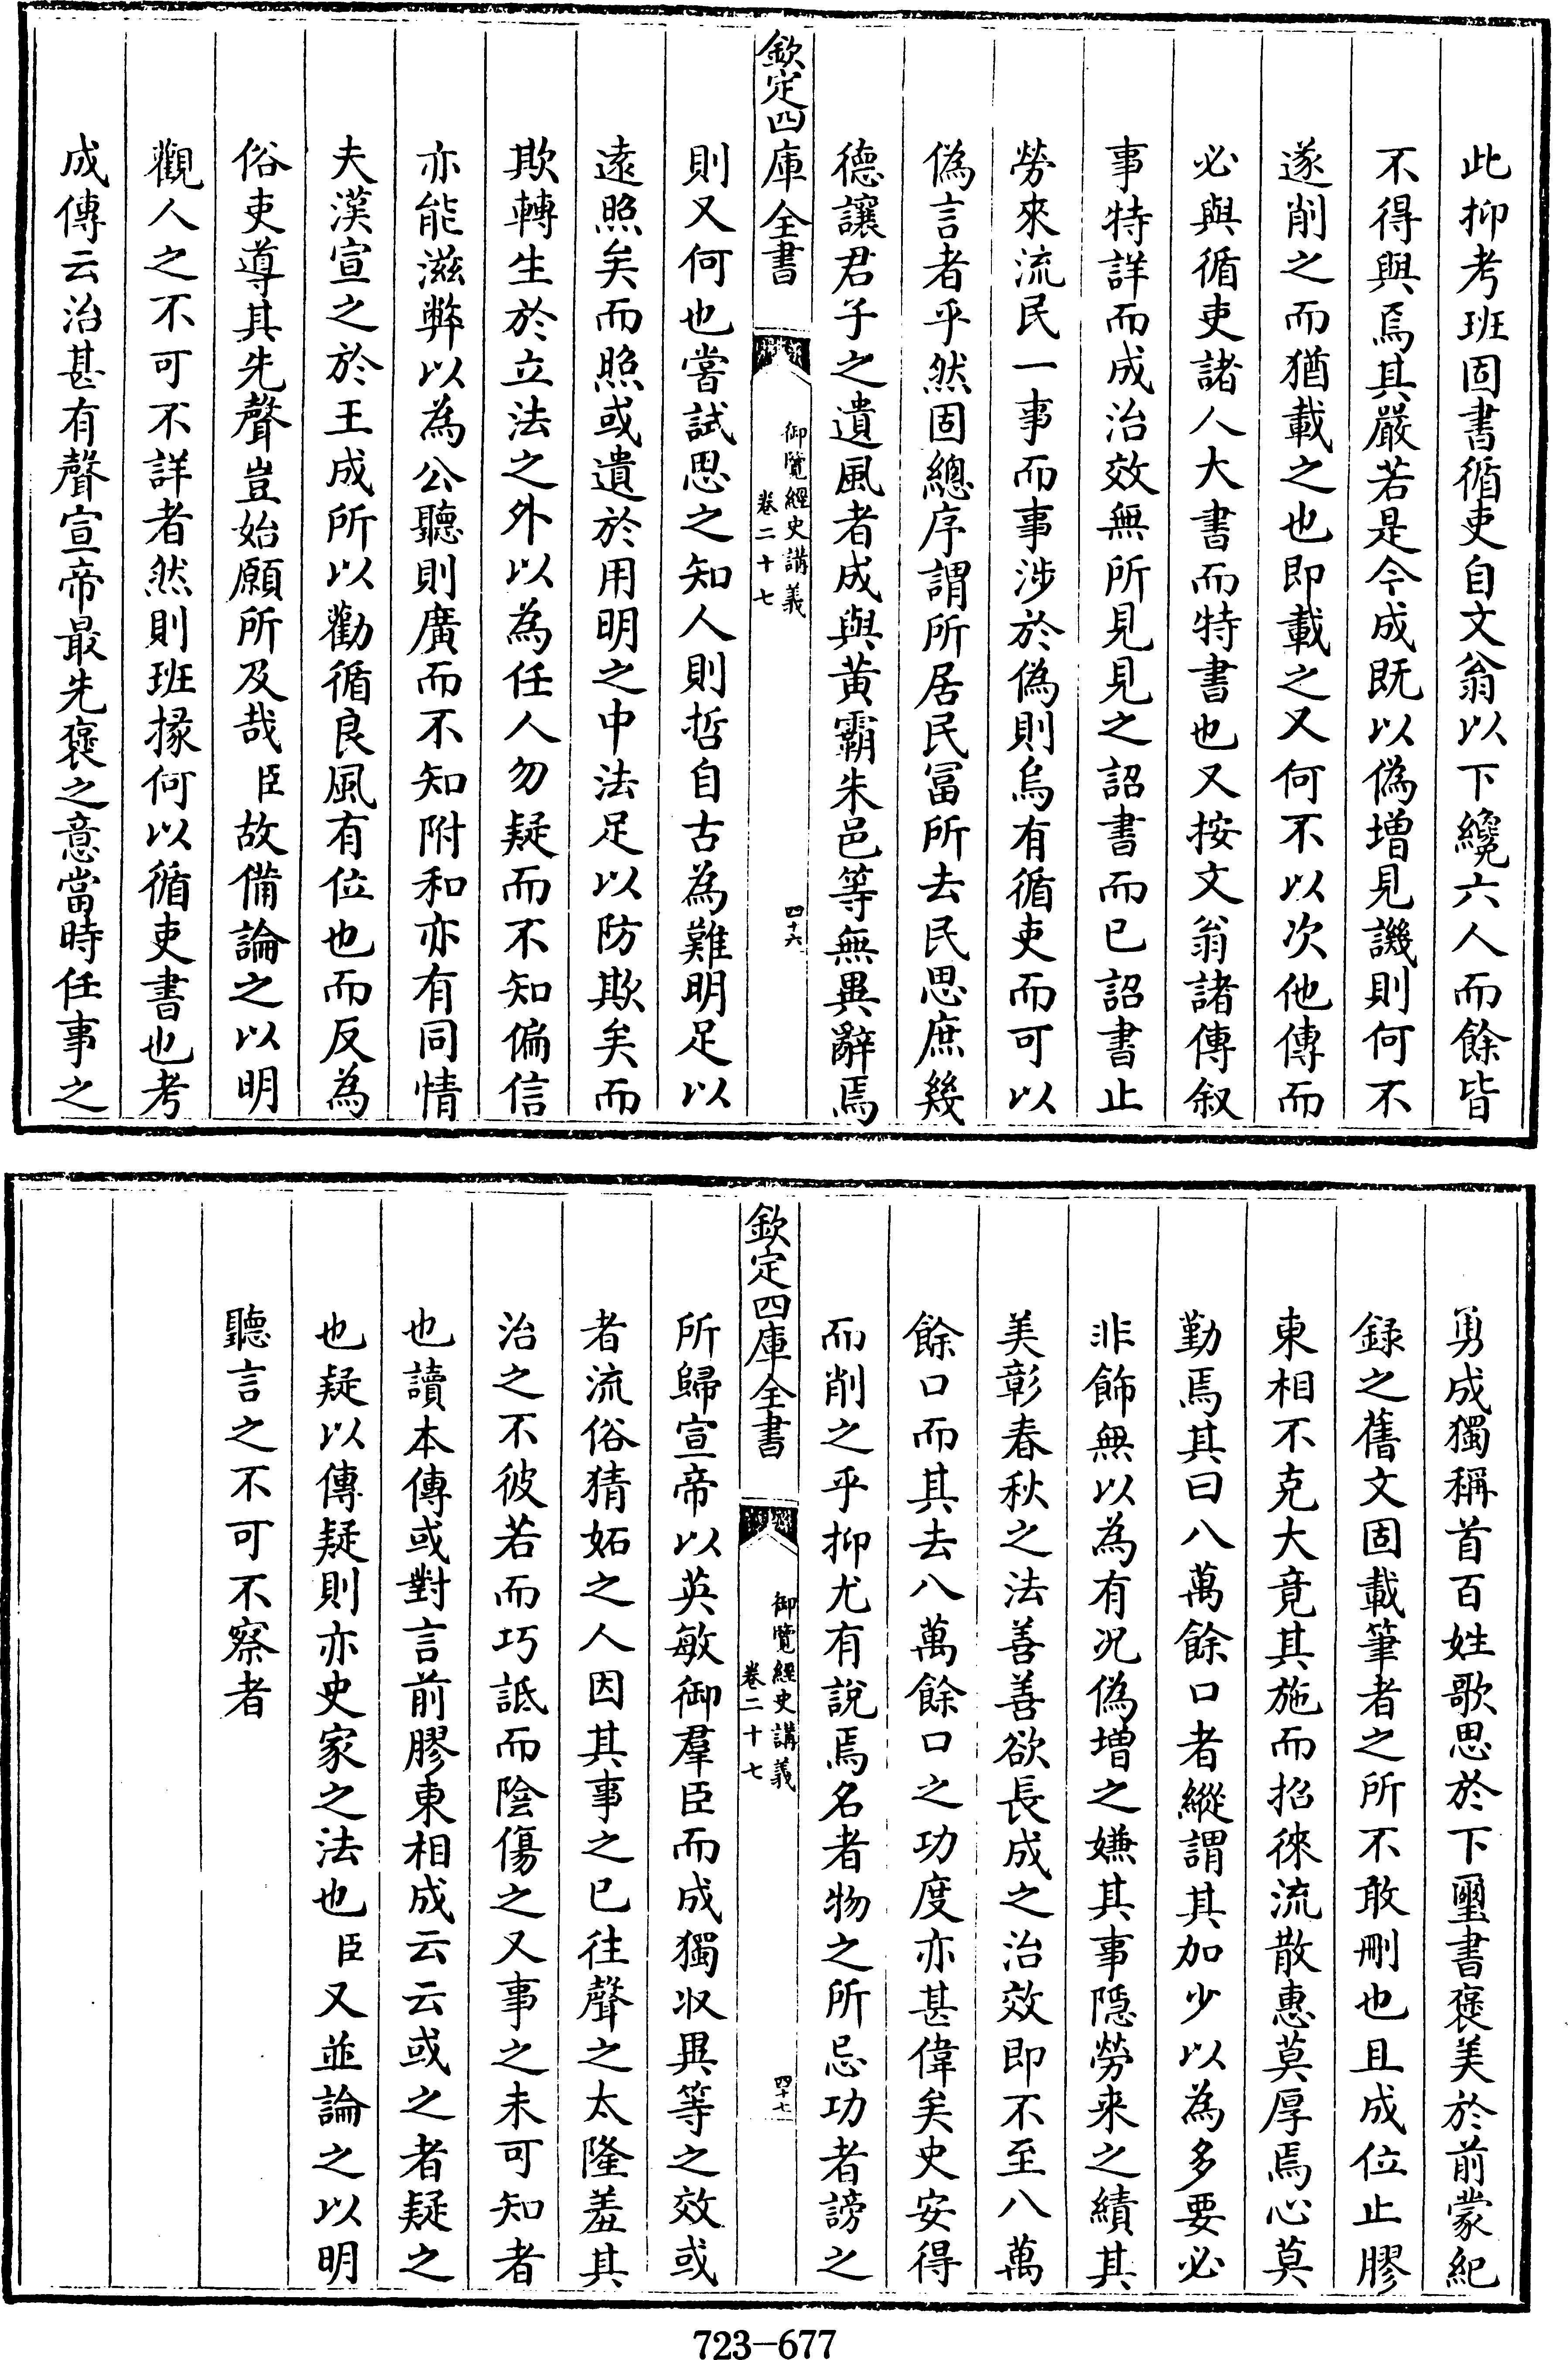 此抑考班固書循吏自文翁以下纔六人而餘皆
不得與焉其嚴若是今成既以偽增見譏則何不
遂削之而猶載之也即載之又何不以次他傳而
必與循吏諸人大書而特書也又按文翁諸傳叙
事特詳而成治效無所見見之詔書而已詔書止
勞來流民一事而事涉於偽則烏有循吏而可以
偽言者乎然固總序謂所居民冨所去民思庶幾
德讓君子之遺風者成與黄霸朱邑等無異辭焉
欽定四庫全書
御覽經史講義
卷二十七
四十六
則又何也嘗試思之知人則哲自古為難明足以
遠照矣而照或遺於用明之中法足以防欺矣而
欺轉生於立法之外以為任人勿疑而不知偏信
亦能滋弊以為公聽則廣而不知附和亦有同情
夫漢宣之於王成所以勸循良風有位也而反為
俗吏導其先聲豈始願所及哉臣故備論之以明
觀人之不可不詳者然則班掾何以循吏書也考
成傳云治甚有聲宣帝最先褒之意當時任事之
勇成獨稱首百姓歌思於下璽書褒美於前蒙紀
録之舊文固載筆者之所不敢刪也且成位止膠
東相不克大竟其施而招徠流散惠莫厚焉心莫
勤焉其曰八萬餘口者縱謂其加少以為多要必
非飾無以為有况偽增之嫌其事隱勞来之績其
美彰春秋之法善善欲長成之治效即不至八萬
餘口而其去八萬餘口之功度亦甚偉矣史安得
而削之乎抑尤有說焉名者物之所忌功者謗之
欽定四庫全書
御覽經史講義
卷二十七
四十七
所歸宣帝以英敏御羣臣而成獨收異等之效或
者流俗猜妬之人因其事之已往聲之太隆羞其
治之不彼若而巧詆而陰傷之又事之未可知者
也讀本傳或對言前膠東相成云云或之者疑之
也疑以傳疑則亦史家之法也臣又並論之以明
聽言之不可不察者
723-677